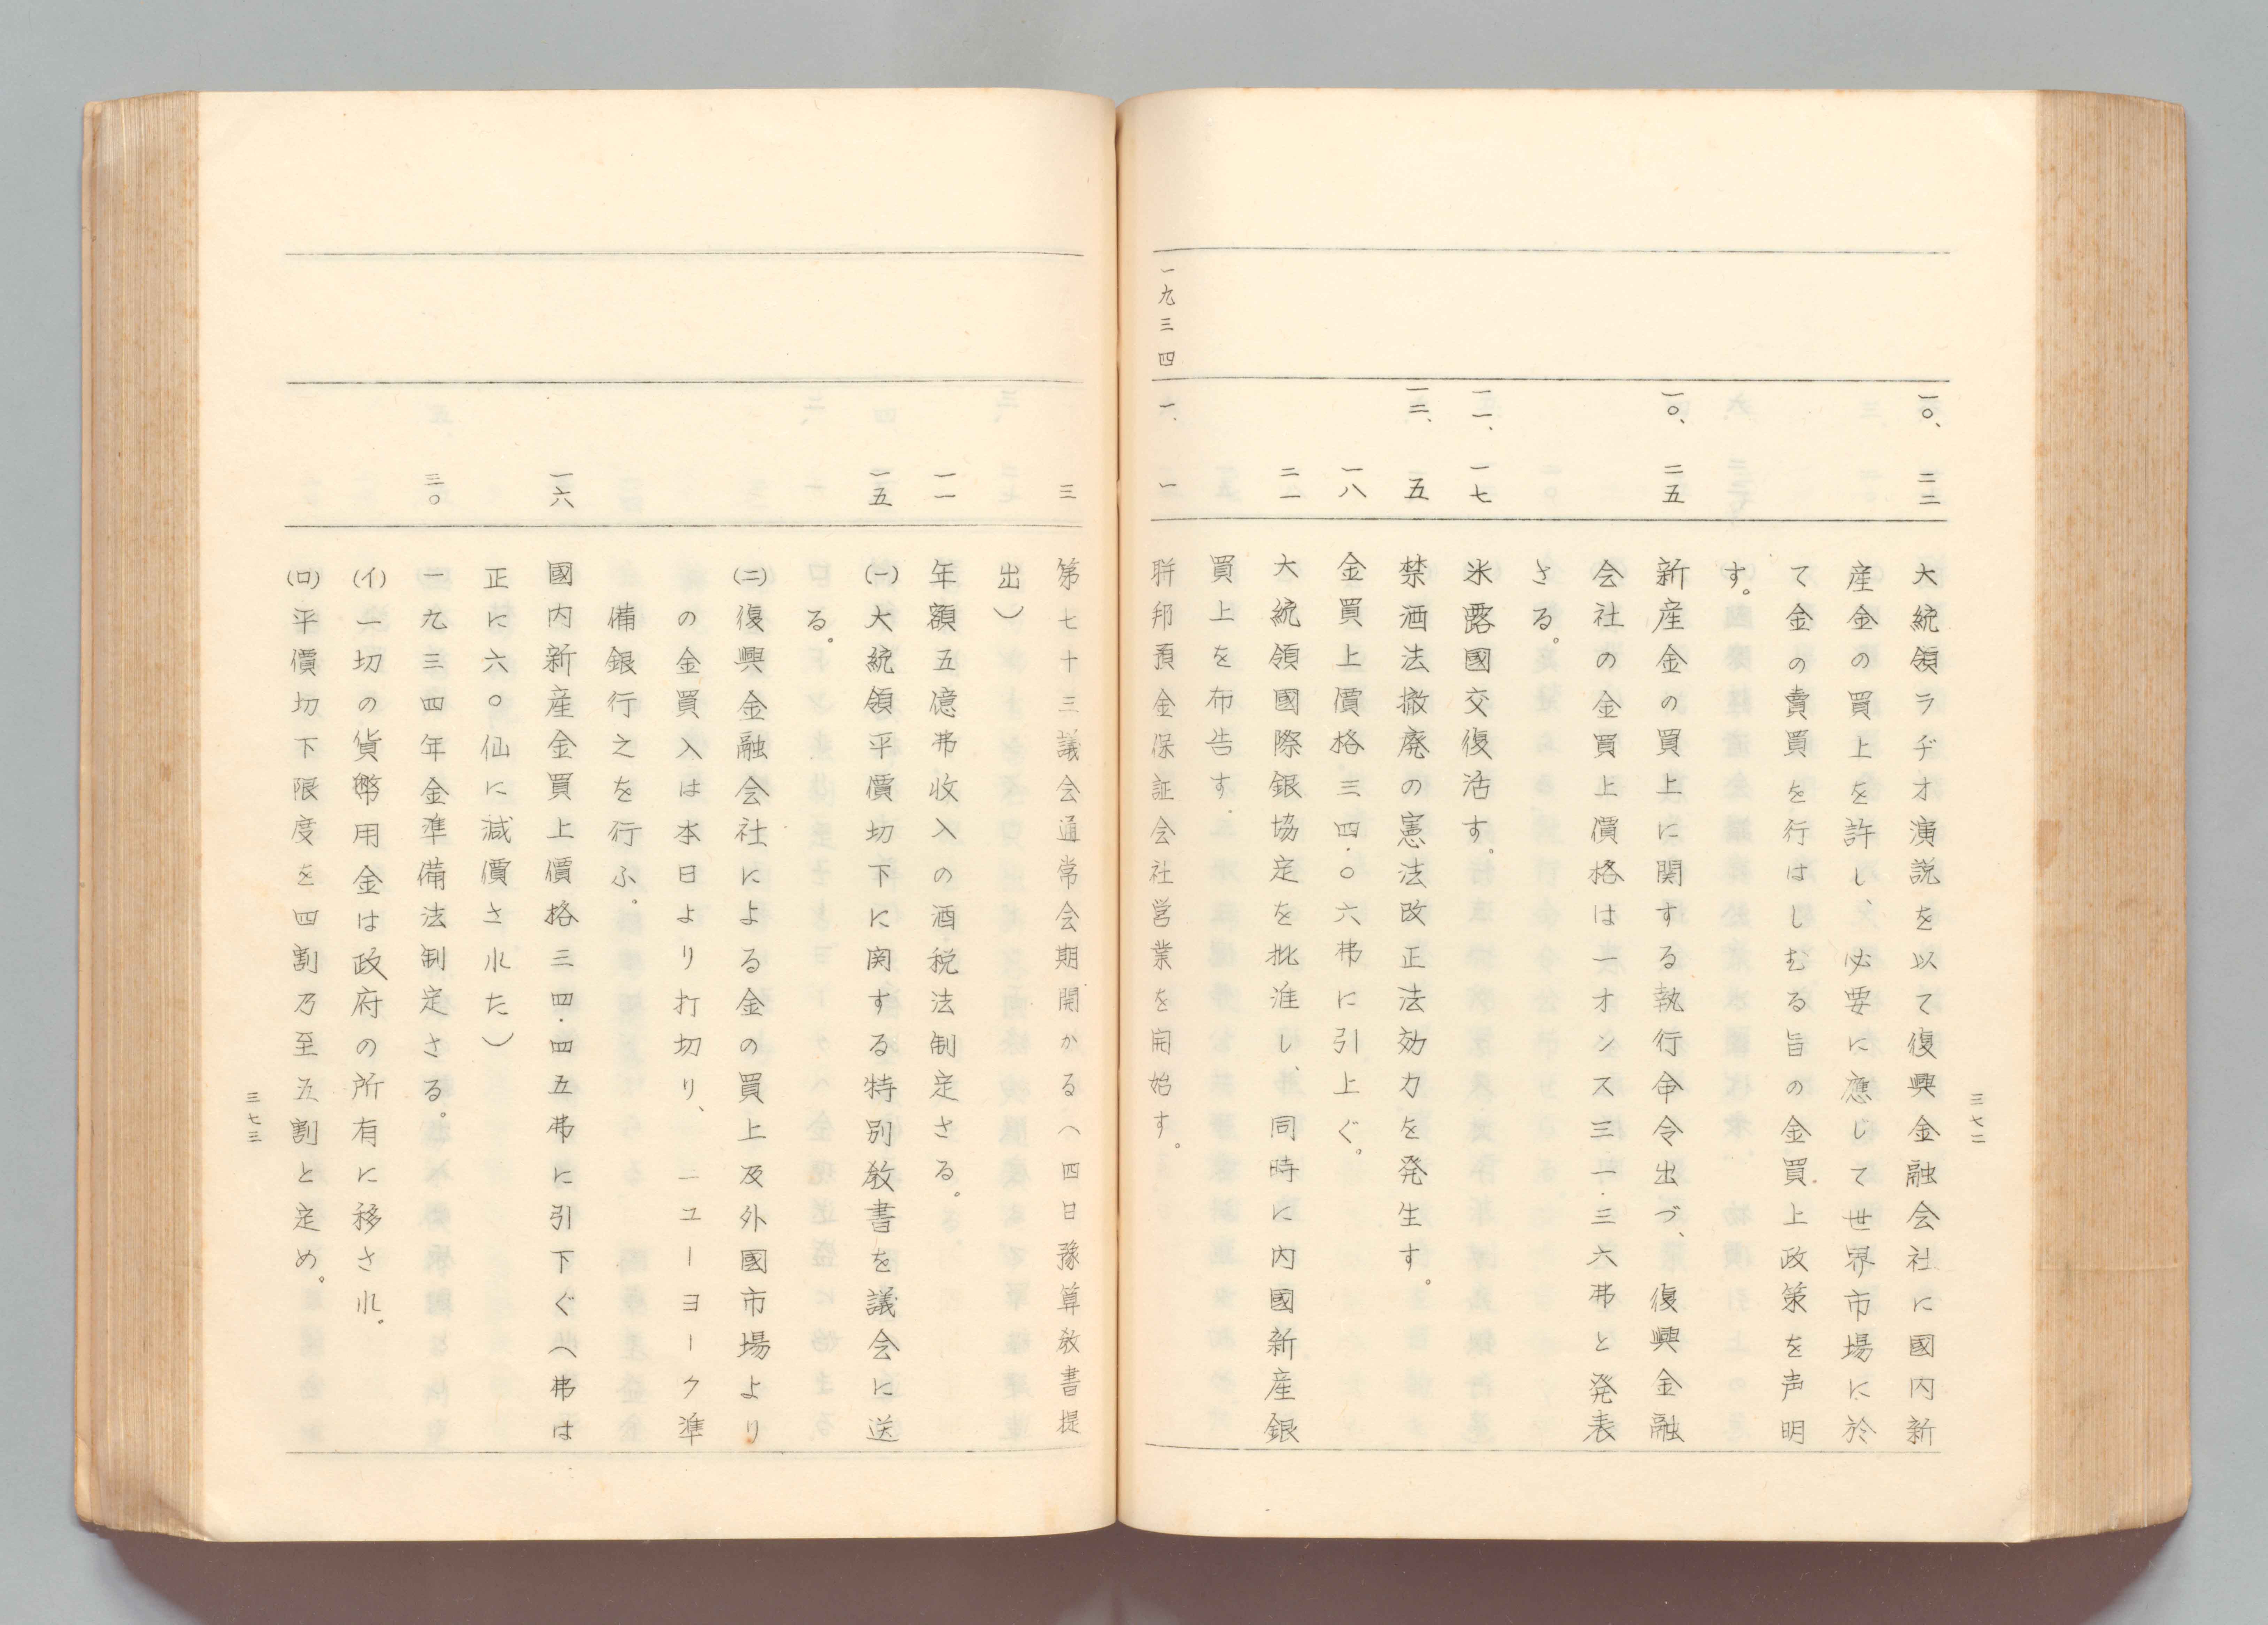 三七二
一〇、二二 大統領ラヂオ演説を以て復興金融会社に國内新
産金の買上を許し、必要に應じて世界市場に於
て金の賣買を行はしむる旨の金買上政策を声明
す。
一〇、二五 新産金の買上に関する執行命令出づ、復興金融
会社の金買上價格は一オンス三一・三六弗と発表
さる。
一一、一七 米露國交復活す。
一二、五 禁酒法撤廃の憲法改正法効力を発生す。
一八 金買上價格三四・〇六弗に引上ぐ。
二一 大統領國際銀協定を批准し、同時に内國新産銀
買上を布告す.
一九三四 一、一 聨邦預金保証会社営業を開始す。
三 第七十三議会通常会期開かる(四日豫算教書提
出)
一一 年額五億弗収入の酒税法制定さる。
一五 (一)大統領平價切下に関する特別教書を議会に送
る。
(二)復興金融会社による金の買上及外國市場より
の金買入は本日より打切り、ニューヨーク準
備銀行之を行ふ。
一六 國内新産金買上價格三四・四五弗に引下ぐ(弗は
正に六〇仙に減價された)
三〇 一九三四年金準備法制定さる。
(イ)一切の貨幣用金は政府の所有に移され。
(ロ)平價切下限度を四割乃至五割と定め。
三七三